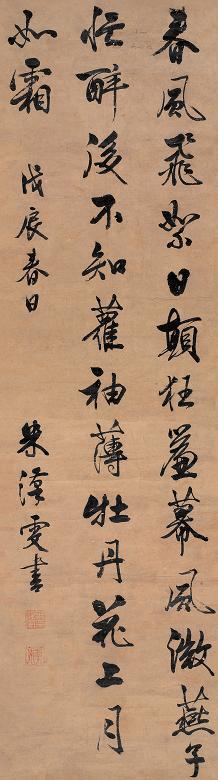 春風飛絮日顛狂簾幕風微燕子
忙醉後不知羅袖薄牡丹花上月
如霜 戊辰春日 朱漢雯書